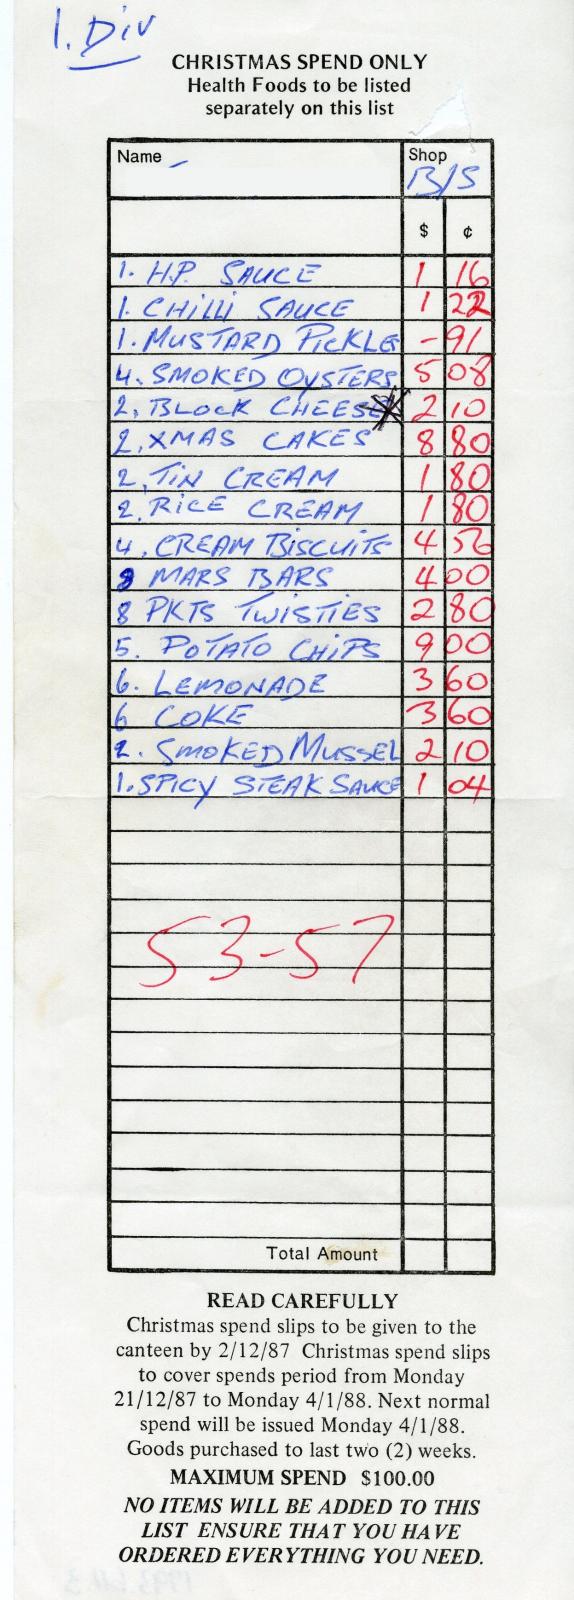 1. Div
CHRISTMAS SPEND ONLY
Health Foods to be listed
separately on this list
Name - Shop
B/S
$ ¢
1. H.P. SAUCE 1 16
1. CHILLI SAUCE 1 22
1. MUSTARD PICKLE - 91
4. SMOKED OYSTERS 5 08
2. BLOCK CHEESE 2 10
2. XMAS CAKES 8 80
2. TIN CREAM 1 80
2. RICE CREAM 1 80
4. CREAM BISCUITS 4 56
8 MARS BARS 4 00
8 PKTS TWISTIES 2 80
5. POTATO CHIPS 9 00
6. LEMONADE 3 60
6 COKE 3 60
2. SMOKED MUSSEL 2 10
1. SPICY STEAK SAUCE 1 04
53-57
Total Amount
READ CAREFULLY
Christmas spend slips to be given to the
canteen by 2/12/87 Christmas spend slips
to cover spends period from Monday
21/12/87 to Monday 4/1/88. Next normal
spend will be issued Monday 4/1/88.
Goods purchased to last two (2) weeks.
MAXIMUM SPEND $100.00
NO ITEMS WILL BE ADDED TO THIS
LIST ENSURE THAT YOU HAVE
ORDERED EVERYTHING YOU NEED.